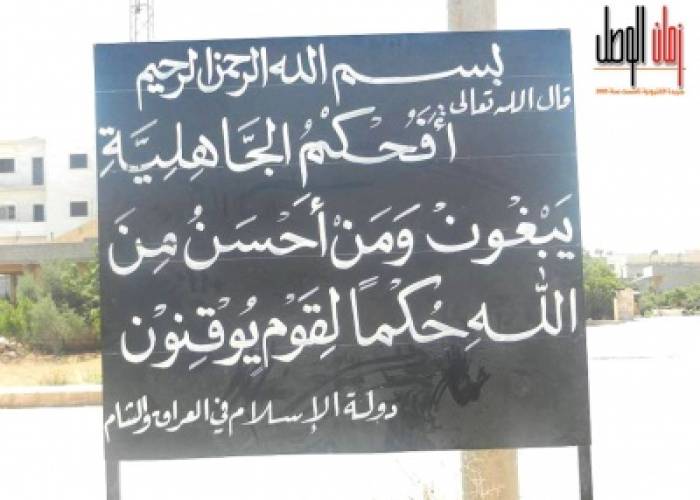 زمان الوصل
بسم الله الرحمن الرحيم
قال الله تعالى
أفَحُكْمُ الجَّاهِلِيَّةِ
يَبْغُونَ وَمَنْ أَحْسَنُ مِنَ
اللهِ حُكْمًا لِقَوْمٍ يُوقِنُونْ
دولة الإسلام في العراق والشام